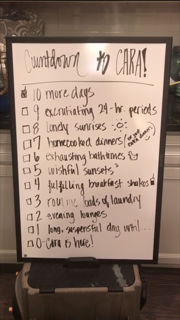 Countdown to CARA!
10 more days
9 excruciating 24-hr. periods
8 lonely sunrises
7 homecooked dinners
6 exhausting bathtimes
5 wishful sunsets
4 fulfilling breakfast shakes
3 loads of laundry
2 evening lounges
1 long, suspenseful day until...
0 - Cara is here!